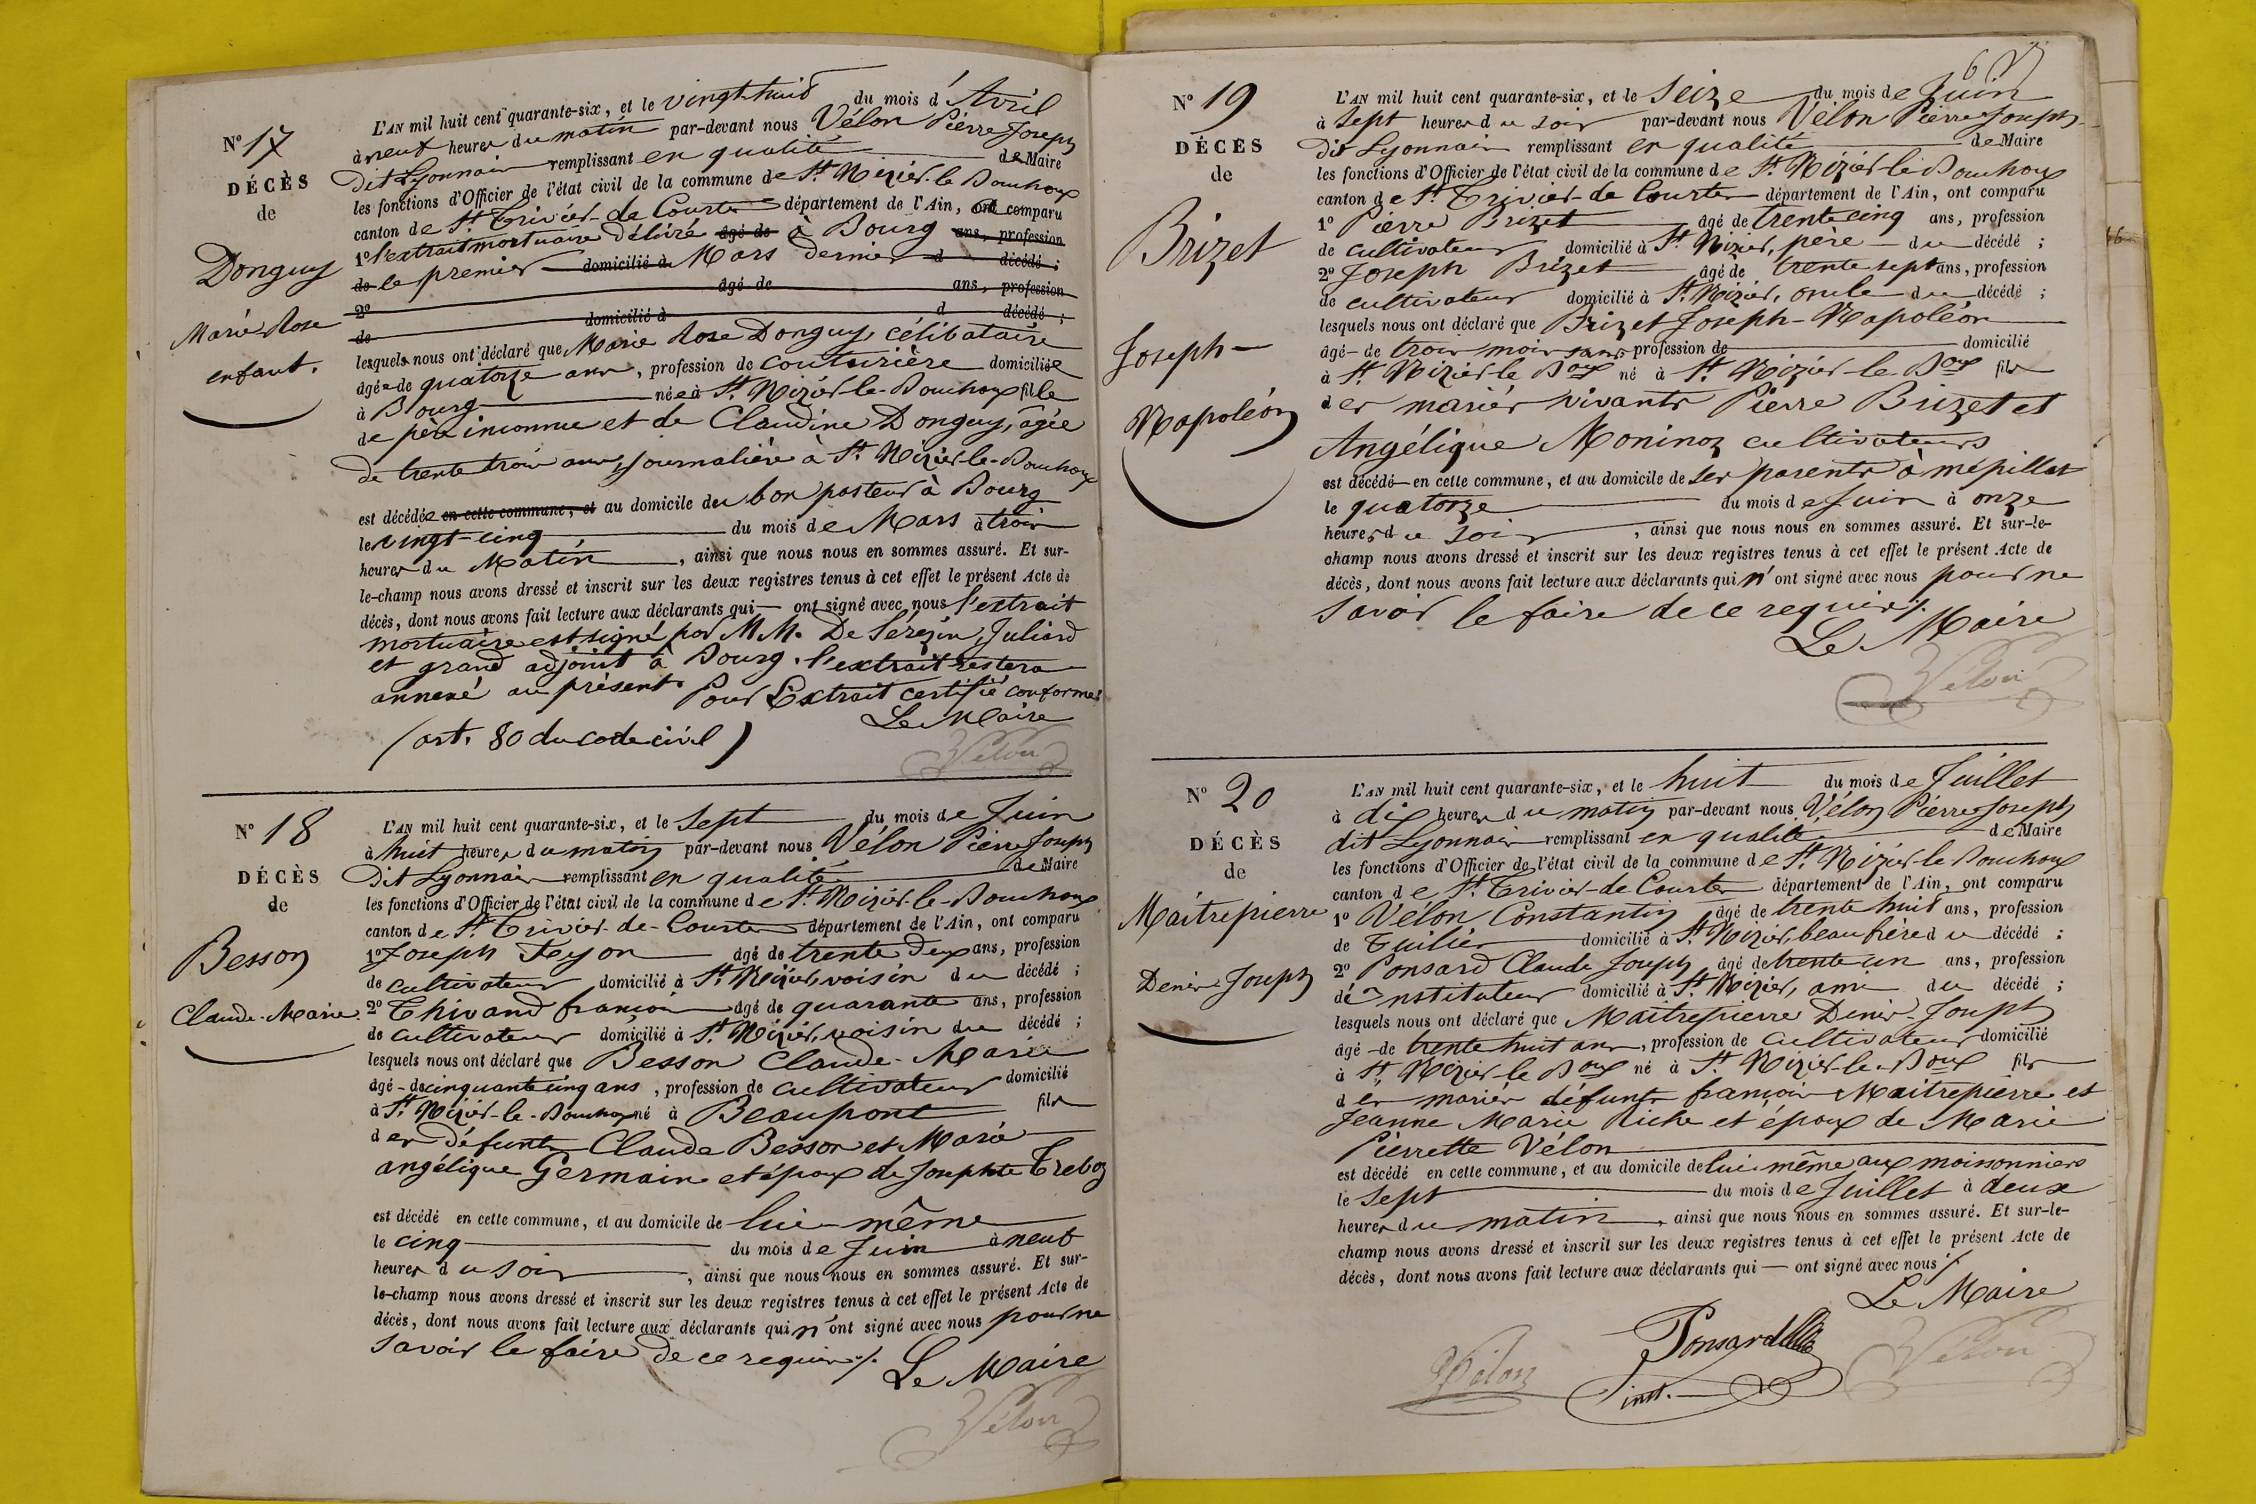 N° 17
DÉCÈS
de
Donguy
Marie Rose
enfant.
L'AN mil huit cent quarante-six, et le vingt-huit du mois d'Avril
à neuf heures du matin par-devant nous Vélon Pierre Joseph
dit Lyonnais remplissant en qualité de Maire
les fonctions d'Officier de l'état civil de la commune de St. Nizier-le-Bouchoux
canton de St. Trivier-de-Courtes département de l'Ain, ont comparu
1° l'extrait mortuaire délivré âgé de à Bourg ans, profession
de le premier domicilié à Mars dernier d décédé ;
2° âgé de ans, profession
de domicilié à d décédé ;
lesquels nous ont déclaré que Marie Rose Donguy, célibataire
âgée de quatorze ans, profession de couturière domiciliée
à Bourg née à St. Nizier-le-Bouchoux fille
de père inconnu et de Claudine Donguy, âgée
de trente trois ans, journalière à St. Nizier-le-Bouchoux
est décédée en cette commune, et au domicile du bon pasteur à Bourg
le vingt-cinq du mois de Mars à trois
heures du Matin, ainsi que nous nous en sommes assuré. Et sur-
le-champ nous avons dressé et inscrit sur les deux registres tenus à cet effet le présent Acte de
décès, dont nous avons fait lecture aux déclarants qui — ont signé avec nous l'extrait
mortuaire est signé par MM. De Serezin, Juliard
et grand adjoint à Bourg. l'extrait restera
annexé au présent. Pour Extrait certifié conforme
(art. 80 du code civil) Le Maire
Vélon
N° 18
DÉCÈS
de
Besson
Claude-Marie
L'AN mil huit cent quarante-six, et le sept du mois de Juin
à huit heures du matin par-devant nous Vélon Pierre Joseph
Dit Lyonnais remplissant en qualité de Maire
les fonctions d'Officier de l'état civil de la commune de St. Nizier-le-Bouchoux
canton de St. Trivier-de-Courtes département de l'Ain, ont comparu
1° Joseph Feyon âgé de trente deux ans, profession
de cultivateur domicilié à St. Nizier, voisin du décédé ;
2° Thivand françois âgé de quarante ans, profession
de cultivateur domicilié à St. Nizier, voisin du décédé ;
lesquels nous ont déclaré que Besson Claude-Marie
âgé de cinquante cinq ans, profession de cultivateur domicilié
à St. Nizier-le-Bouchoux né à Beaupont fils
des défunts Claude Besson et Marie
angélique Germain et époux de Josephte Treboz
est décédé en cette commune, et au domicile de lui-même
le cinq du mois de Juin à neuf
heures du soir, ainsi que nous nous en sommes assuré. Et sur-
le-champ nous avons dressé et inscrit sur les deux registres tenus à cet effet le présent Acte de
décès, dont nous avons fait lecture aux déclarants qui n'ont signé avec nous pour ne
savoir le faire de ce requis ./. Le Maire
Vélon
6
N° 19
DÉCÈS
de
Brizet
Joseph-
Napoléon
L'AN mil huit cent quarante-six, et le seize du mois de Juin
à sept heures du soir par-devant nous Vélon Pierre Joseph
dit Lyonnais remplissant en qualité de Maire
les fonctions d'Officier de l'état civil de la commune de St. Nizier-le-Bouchoux
canton de St. Trivier-de-Courtes département de l'Ain, ont comparu
1° Pierre Brizet âgé de trente cinq ans, profession
de cultivateur domicilié à St. Nizier, père du décédé ;
2° Joseph Brizet âgé de trente sept ans, profession
de cultivateur domicilié à St. Nizier, oncle du décédé ;
lesquels nous ont déclaré que Brizet Joseph-Napoléon
âgé de trois mois sans profession de domicilié
à St. Nizier-le-Boux né à St. Nizier-le-Boux fils
des mariés vivants Pierre Brizet et
Angélique Moninoz cultivateurs
est décédé en cette commune, et au domicile de ses parents à mépillat
le quatorze du mois de Juin à onze
heures du soir, ainsi que nous nous en sommes assuré. Et sur-le-
champ nous avons dressé et inscrit sur les deux registres tenus à cet effet le présent Acte de
décès, dont nous avons fait lecture aux déclarants qui n'ont signé avec nous pour ne
savoir le faire de ce requis ./.
Le Maire
Vélon
N° 20
DÉCÈS
de
Maitrepierre
Denis-Joseph
L'AN mil huit cent quarante-six, et le huit du mois de Juillet
à dix heures du matin par-devant nous Vélon Pierre Joseph
dit Lyonnais remplissant en qualité de Maire
les fonctions d'Officier de l'état civil de la commune de St. Nizier-le-Bouchoux
canton de St. Trivier-de-Courtes département de l'Ain, ont comparu
1° Vélon Constantin âgé de trente huit ans, profession
de Tuilier domicilié à St. Nizier, beau frère du décédé ;
2° Ponsard Claude Joseph âgé de trente un ans, profession
d'instituteur domicilié à St. Nizier, ami du décédé ;
lesquels nous ont déclaré que Maitrepierre Denis-Joseph
âgé de trente huit ans, profession de cultivateur domicilié
à St. Nizier-le-Boux né à St. Nizier-le-Boux fils
des mariés défunts françois Maitrepierre et
Jeanne Marie Riche et époux de Marie
Pierrette Vélon
est décédé en cette commune, et au domicile de lui-même aux moissonniers
le sept du mois de Juillet à deux
heures du matin, ainsi que nous nous en sommes assuré. Et sur-le-
champ nous avons dressé et inscrit sur les deux registres tenus à cet effet le présent Acte de
décès, dont nous avons fait lecture aux déclarants qui — ont signé avec nous ./.
Le Maire
Vélon Ponsard Vélon
inst.